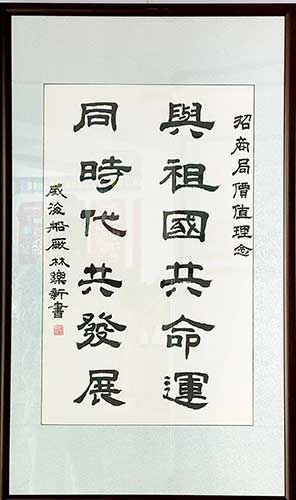 招商局價值理念
與祖國共命運
同時代共發展
威海船厰林樂新書